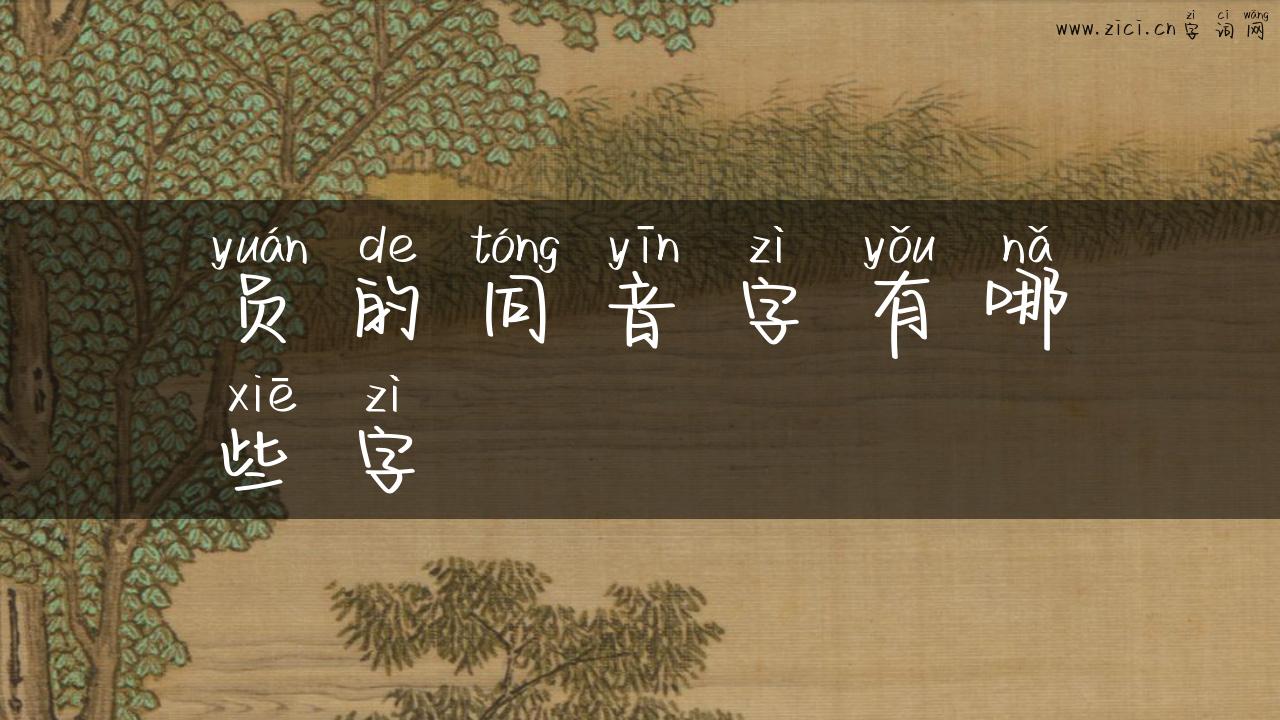 zì cí wǎng
www.zici.cn字词网
yuán de tóng yīn zì yǒu nǎ
员的同音字有哪
xiē zì
些字